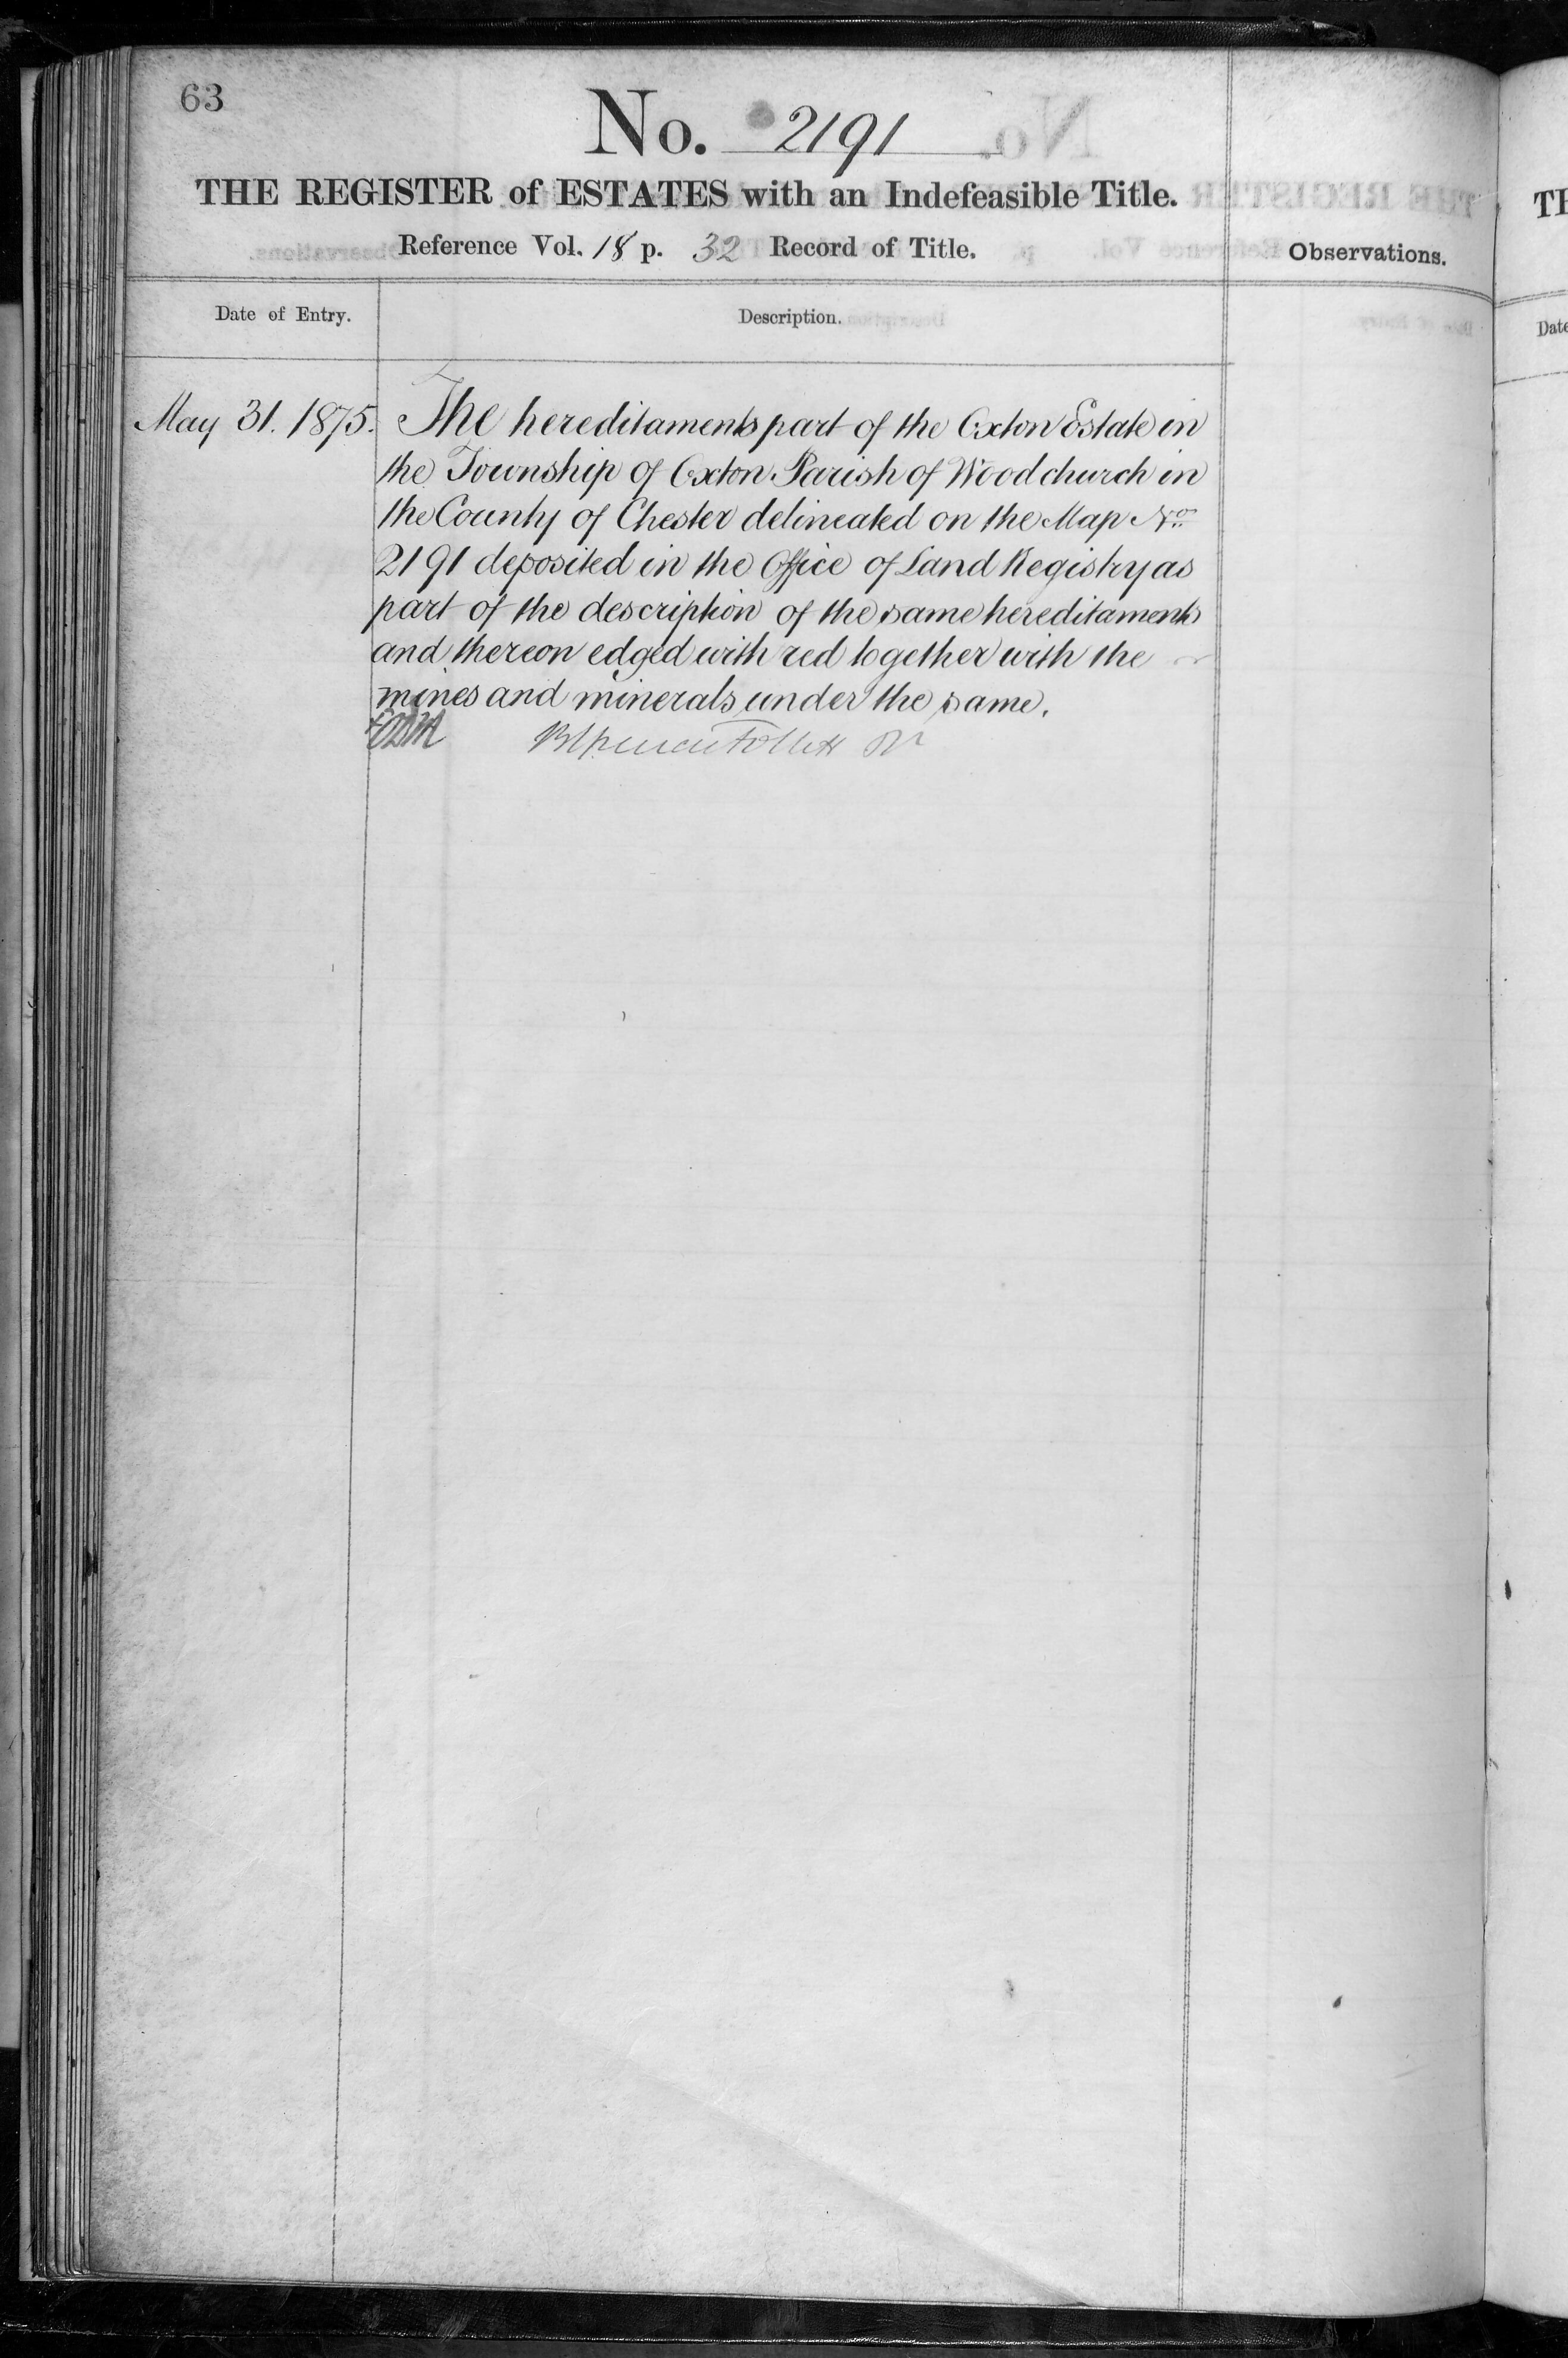 63
No. 2191
THE REGISTER of ESTATES with an Indefeasible Title.
Reference Vol. 18 p. 32 Record of Title.
Observations.
Date of Entry.
Description.
May 31. 1875.
The hereditaments part of the Oxton Estate in
the Township of Oxton Parish of Woodchurch in
the County of Chester delineated on the Map No.
2191 deposited in the Office of Land Registry as
part of the description of the same hereditaments
and thereon edged with red together with the
mines and minerals under the same.
Follett
TH
Date